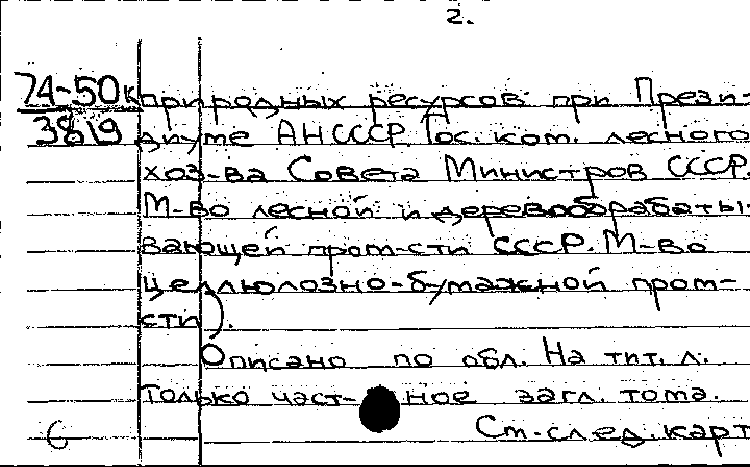 2.
74-50к природных ресурсов при Прези-
3819 диуме АНСССР. Гос. ком. лесного
хоз-ва Совета Министров СССР.
М-во лесной и деревообрабаты-
вающей пром-сти СССР. М-во
целлюлозно-бумажной пром-
сти).
Описано по обл. На тит. л.
только част-ное загл. тома.
См. след. карт